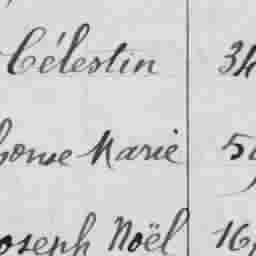 Célestin 34
Marie 59
Joseph Noël 16